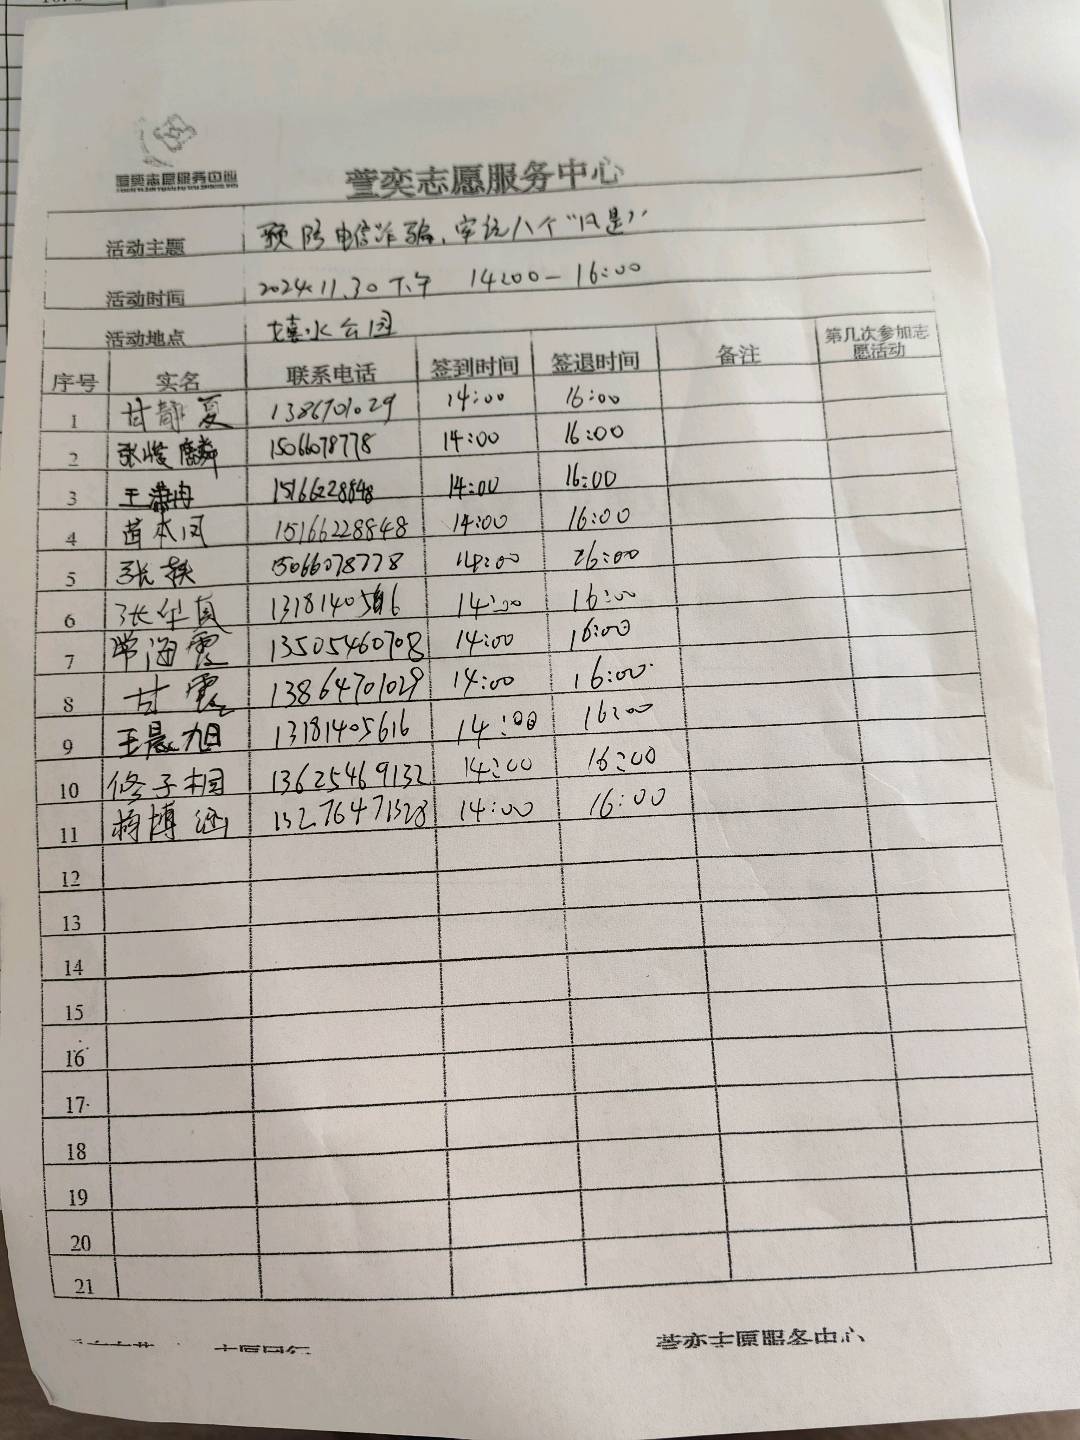 萱奕志愿服务中心
萱奕志愿服务中心
活动主题 预防电信诈骗,牢记八个"凡是"
活动时间 2024.11.30下午 14:00-16:00
活动地点 嬉水公园
序号 实名 联系电话 签到时间 签退时间 备注 第几次参加志愿活动
1 甘静夏 1386701029 14:00 16:00
2 张峻麟 15066078778 14:00 16:00
3 王潇冉 15166228848 14:00 16:00
4 苗本凤 15166228848 14:00 16:00
5 张轶 15066078778 14:00 16:00
6 张华真 14:00 16:00
7 常海霞 13505460708 14:00 16:00
8 甘霞 13864701029 14:00 16:00
9 王晨旭 13181405616 14:00 16:00
10 修子桐 13625469132 14:00 16:00
11 蒋博涵 15276471328 14:00 16:00
12
13
14
15
16
17
18
19
20
21
志愿同行 萱奕志愿服务中心